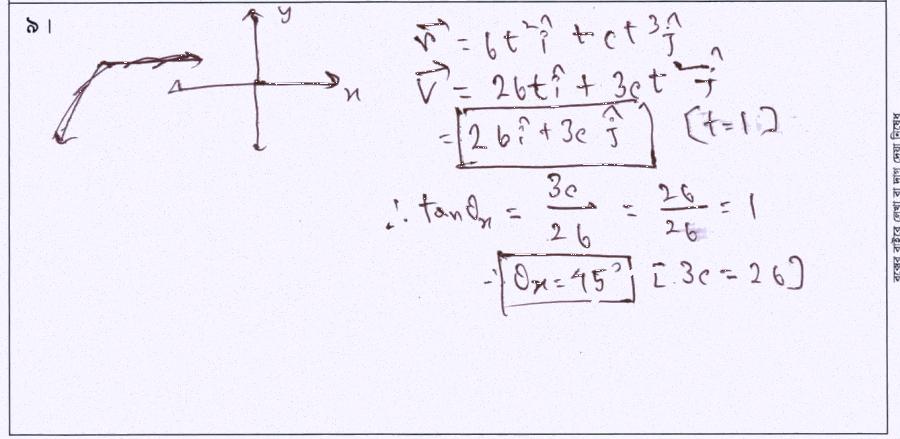 ৯।
y
x
r⃗ = bt² î + ct³ ĵ
v⃗ = 2bt î + 3ct² ĵ
= 2b î + 3c ĵ [t=1]
∴ tanθx = 3c/2b = 2b/2b = 1
∴ θx = 45° [3c = 2b]
বক্সের বাইরে লেখা বা দাগ দেয়া নিষেধ